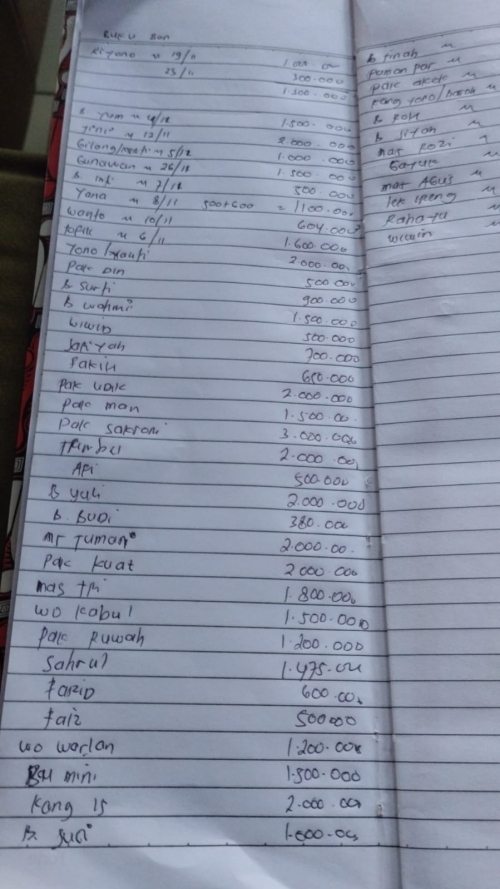 Buku Man
Riyono ~ 19/11 1.000.000
23/11 300.000
1.300.000
B Yum ~ 4/12 1.500.000
12/11 2.000.000
Gilang/ ~ 5/12 1.000.000
Gunawan ~ 26/11 1.500.000
B Ink ~ 2/12 500.000
Yana ~ 8/11 500+600 = 1100.000
Wanto ~ 10/11 604.000
Topik ~ 6/11 1.600.000
Yono / 2.000.000
Pak Din 500.000
B Surti 900.000
B Wahmi 1.500.000
Wiwid 500.000
700.000
Pakih 650.000
Pak 2.000.000
Pak Man 1.500.00.
Pak Sakroni 3.000.000
Trimbul 2.000.000
Api 500.000
B Yuli 2.000.000
B. Budi 380.000
Mr Tuman 2.000.00.
Pak Kuat 2000.000
Mas Tri 1.800.000
Wo Kabul 1.500.000
Pak Ruwah 1.200.000
Sahrul 1.475.000
Farid 600.000
Faiz 500000
Wo Warlan 1.200.000
Mini 1.300.000
Kang Is 2.000.000
B. 1.000.000
B Tinah ~
Paman Par ~
Pak ~
Kang Yono/ ~
B ~
B Siyah ~
Mas Rozi ~
Gayuk ~
Mas Agus ~
Lek ~
Rahayu ~
Wiwin ~